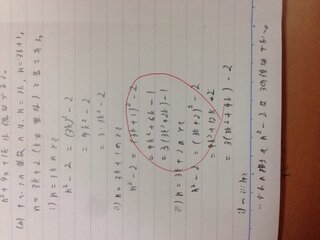 n²+9n+1は
(2) すべての整数 n は, n=3k, n=3k+1,
n=3k+2 (kは整数) と表せる。
i) n=3k のとき
n²-2 = (3k)²-2
= 9k²-2
= 3·3k²-2
ii) n=3k+1 のとき
n²-2 = (3k+1)²-2
= 9k²+6k-1
= 3(3k²+2k)-1
iii) n=3k+2 のとき
n²-2 = (3k+2)²-2
= 9k²+12k+2
= 3(3k²+4k)-2
i) ~ iii) より
n²-2 は 3の倍数でない。